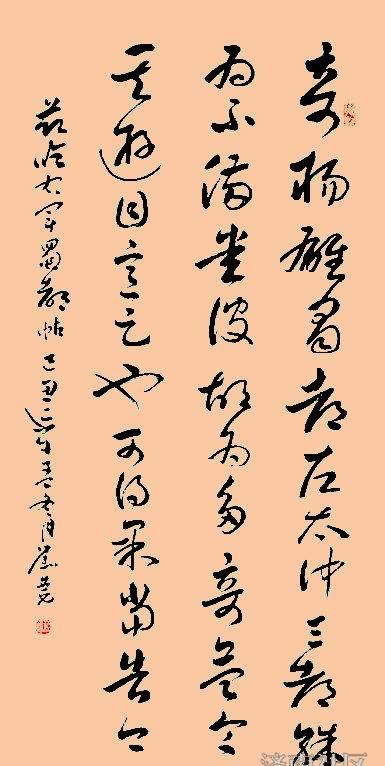 奇揚雄蜀都左太冲三都殊
為不備悉彼故為多奇益令
其遊目意足也可得果當告卿
兹临右军蜀都帖己丑